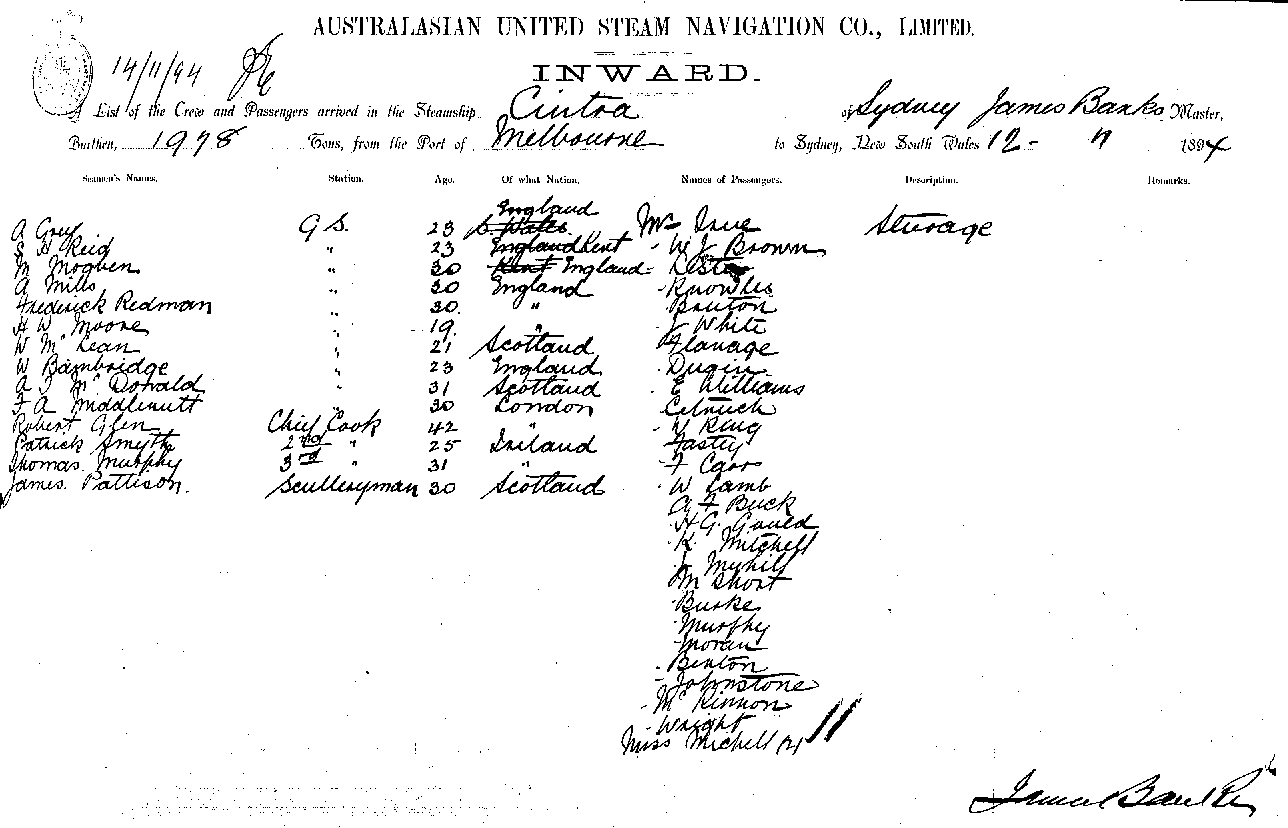 AUSTRALASIAN UNITED STEAM NAVIGATION CO., LIMITED.
14/11/94
INWARD.
A List of the Crew and Passengers arrived in the Steamship Cintra of Sydney James Banks Master,
Burthen, 1978 Tons, from the Port of Melbourne to Sydney, New South Wales 12 - 11 1894
Seamen's Names. Station. Age. Of what Nation. Names of Passengers. Description. Remarks.
England
A Grey G S. 23 S. Wales Mr Irve Steerage
S H Reid " 23 England Kent - W J Brown
M Mogben " 30 Kent England -
A Mills " 30 England - Knowles
Frederick Redman " 30. " - Bruton
H W Moore " 19. " - J White
W McKean " 21 Scotland - Flanage
W Bambridge " 23 England - Dugin
A J McDonald " 31 Scotland - E Williams
F A Middlemitt " 30 London -
Robert Glen Chief Cook 42 " - Y King
Patrick Smyth 2nd " 25 Ireland - Fastey
Thomas. Murphy 3rd " 31 " - F Carr
James. Pattison. Sculleryman 30 Scotland - W Lamb
A F Buck
- H G. Gould
- K. Mitchell
- J Myhill
- M Short
- Burke
- Murphy
- Moran
- Benton
- Johnstone
- McKinnon
- Wright
Miss Michell
James Banks